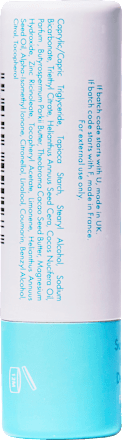 If batch code starts with U, made in UK.
If batch code starts with F, made in France.
For external use only.
Caprylic/Capric Triglyceride, Tapioca Starch, Stearyl Alcohol, Sodium
Bicarbonate, Triethyl Citrate, Helianthus Annuus Seed Cera, Cocos Nucifera Oil,
Parfum, Butyrospermum Parkii Butter, Theobroma Cacao Seed Butter, Magnesium
Hydroxide, Zinc Ricinoleate, Tocopheryl Acetate, Limonene, Helianthus Annuus
Seed Oil, Alpha-Isomethyl Ionone, Citronellol, Linalool, Coumarin, Benzyl Alcohol,
Citral, Tocopherol